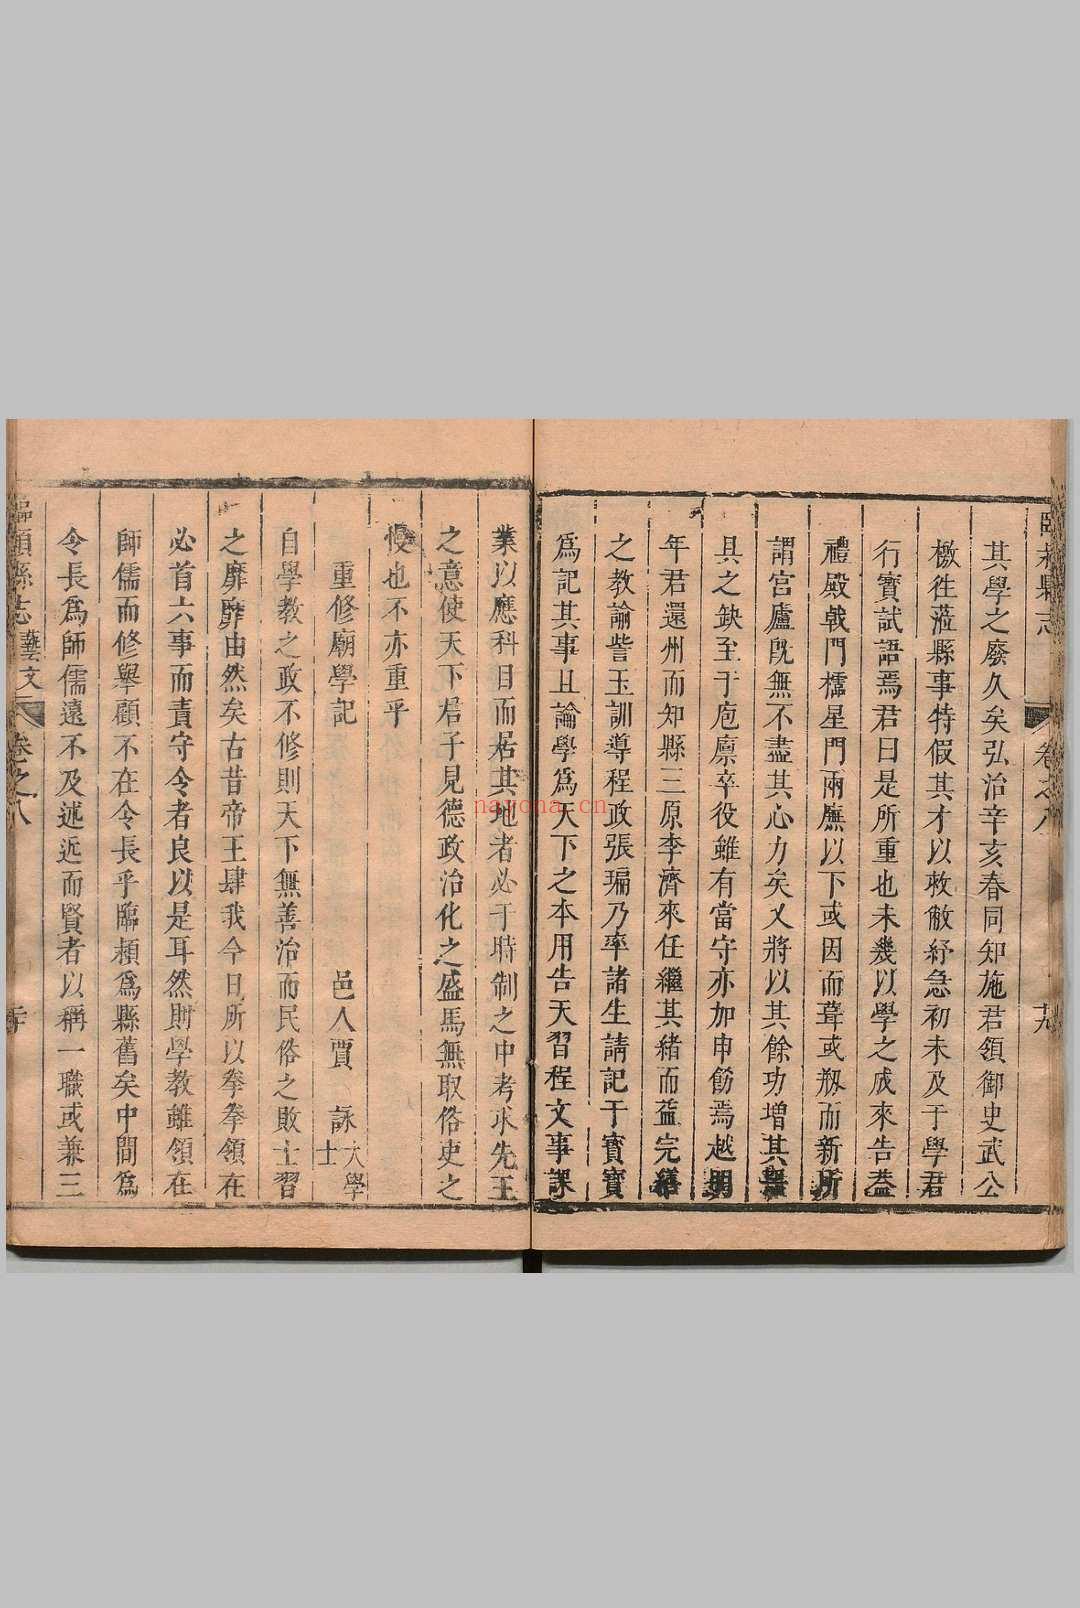 縣志
卷之八
其學之廢久矣弘治辛亥春同知施君領御史武公
檄徃蒞縣事特假其才以救敝紓急初未及于學君
行實試語焉君曰是所重也未幾以學之成來告蓋
禮殿㦸門櫺星門兩廡以下或因而葺或剏而新所
謂宮廬旣無不盡其心力矣又將以其餘功增其
具之缺至于庖廪卒役雖有當守亦加申飭焉越明
年君還州而知縣三原李濟來任繼其緒而益完繕
之教諭訾玉訓導程政張㻞乃率諸生請記于實實
爲記其事且論學爲天下之本用告天習程文事課
業以應科目而居其地者必于時制之中考求先王
之意使天下君子見德政治化之盛焉無取俗吏之
慢也不亦重乎
重修廟學記
邑人賈 詠 大學士
自學教之政不修則天下無善治而民俗之敗士習
之靡靡由然矣古昔帝王肆我今日所以拳拳領在
必首六事而責守令者良以是耳然則學教雖領在
師儒而修舉顧不在令長乎臨潁爲縣舊矣中間爲
令長爲師儒遠不及述近而賢者以稱一職或兼三
臨潁縣志 藝文 卷之八
nayona.cn